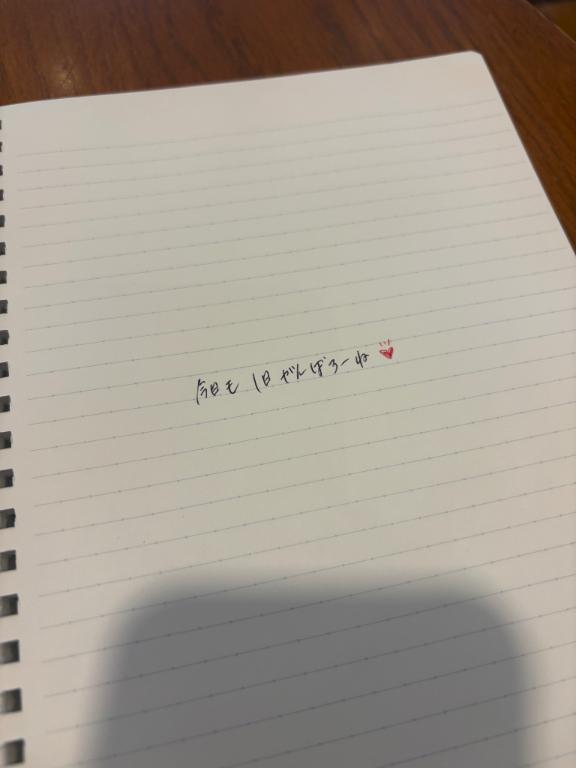 今日も1日がんばろーね♥